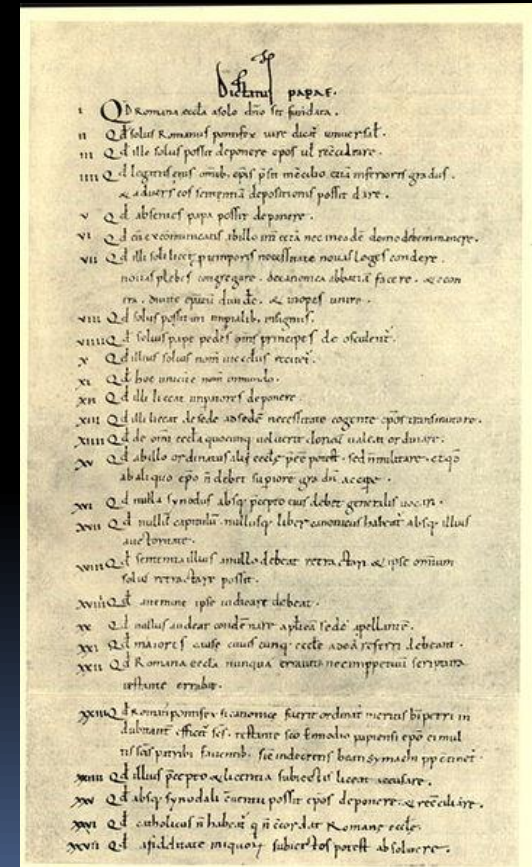 Dictatus papae.
I Qd Romana eccla a solo dno sit fundata.
II Qd solus Romanus pontifex iure dicat universal.
III Qd ille solus possit deponere epos vel reconciliare.
IIII Qd legatus eius omib. epis presit in concilio, etiam inferioris gradus.
& adversus eos sententiam depositionis possit dare.
V Qd absentes papa possit deponere.
VI Qd cum excommunicatis ab illo inter cetera nec in eadem domo debemus manere.
VII Qd illi soli licet pro temporis necessitate novas leges condere
novas plebes congregare. de canonica abbatiam facere. & econ
tra. divite episcopatum dividere. & inopes unire.
VIII Qd solus possit uti imperialib. insignis.
VIIII Qd solius pape pedes oms principes deosculent.
X Qd illius solius nom in ecclis recitet.
XI Qd hoc unicum nom in mundo.
XII Qd illi liceat imperatores deponere.
XIII Qd illi liceat de sede ad sede necessitate cogente epos transmutare.
XIIII Qd de omi eccla quocunq voluerit clericu valeat ordinare.
XV Qd ab illo ordinatus alii eccle preesse potest. sed non militare. et qd
ab aliquo epo n debet superiore gradu accipe.
XVI Qd nulla synodus absq precepto eius debet generalis vocari.
XVII Qd nullu capitulum. nullusq liber canonicus habeat absq illius
auctoritate.
XVIII Qd sententia illius a nullo debeat retractari & ipse omnium
solus retractare possit.
XVIIII Qd a nemine ipse iudicare debeat.
XX Qd nullus audeat condemnare aplica sede apellante.
XXI Qd maiores cause cuiuscunq eccle ad ea referri debeant.
XXII Qd Romana eccla nunqua erravit nec imperpetuu scriptura
testante errabit.
XXIII Qd Romanus pontifex si canonice fuerit ordinat meritis bi petri in
dubitant efficit scs. testante sco Ennodio papiensi epo ei mul
tis scis patribus faventib. sic in decretis beati symachi pp continet.
XXIIII Qd illius precepto & licentia subiectis liceat accusare.
XXV Qd absq synodali conventu possit epos deponere. & reconciliare.
XXVI Qd catholicus n habeat q n concordat Romane eccle.
XXVII Qd a fidelitate iniquor subiectos potest absolvere.